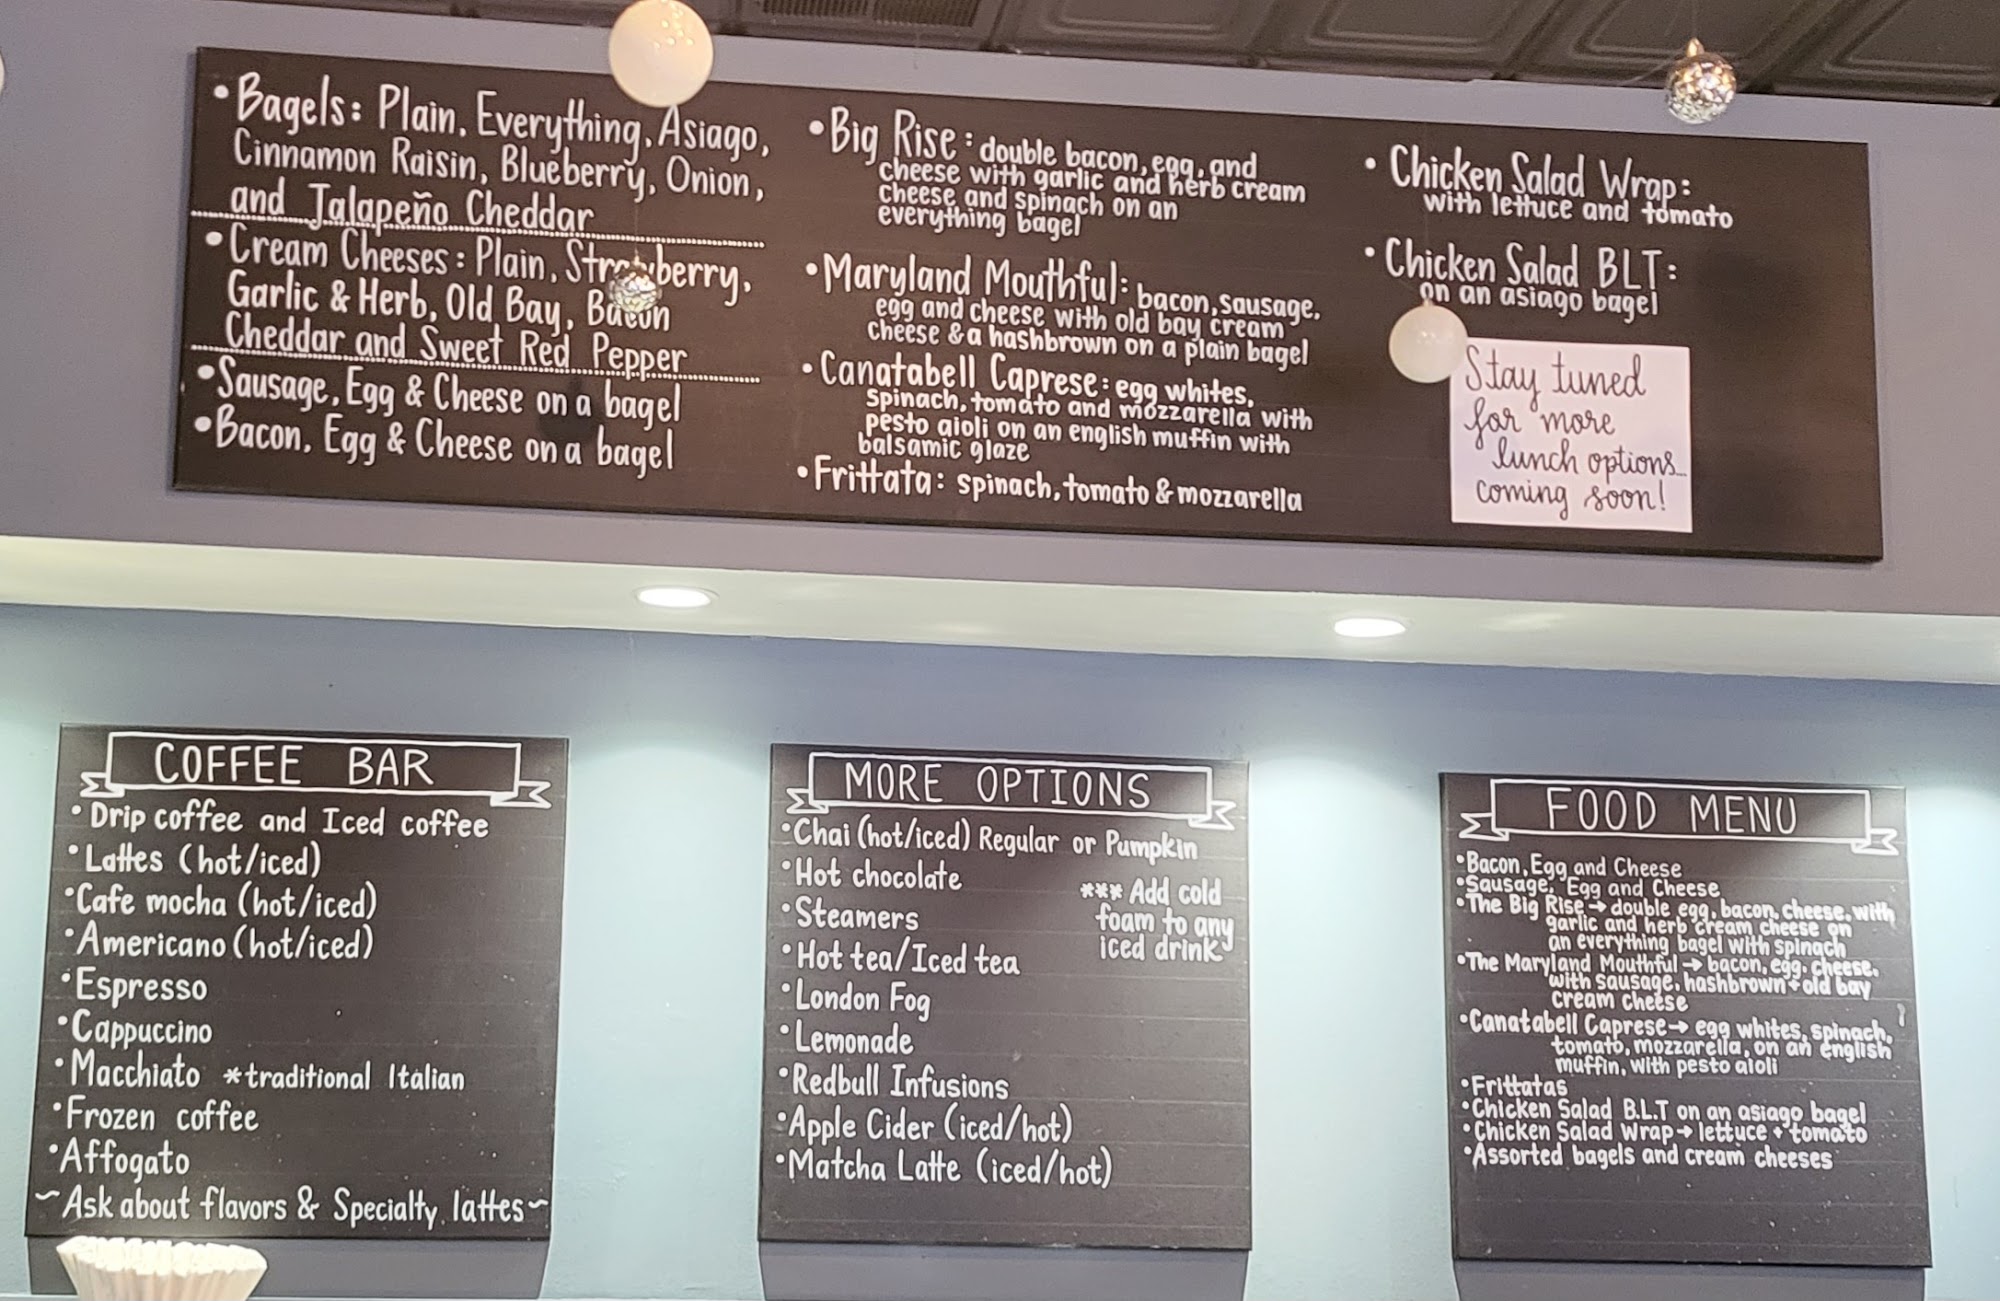 •Bagels: Plain, Everything, Asiago,
Cinnamon Raisin, Blueberry, Onion,
and Jalapeño Cheddar
•Cream Cheeses: Plain, Strawberry,
Garlic & Herb, Old Bay, Bacon
Cheddar and Sweet Red Pepper
•Sausage, Egg & Cheese on a bagel
•Bacon, Egg & Cheese on a bagel
•Big Rise: double bacon, egg, and
cheese with garlic and herb cream
cheese and spinach on an
everything bagel
•Maryland Mouthful: bacon, sausage,
egg and cheese with old bay cream
cheese & a hashbrown on a plain bagel
•Canatabell Caprese: egg whites,
spinach, tomato and mozzarella with
pesto aioli on an english muffin with
balsamic glaze
•Frittata: spinach, tomato & mozzarella
•Chicken Salad Wrap:
with lettuce and tomato
•Chicken Salad BLT:
on an asiago bagel
Stay tuned
for more
lunch options...
coming soon!
COFFEE BAR
•Drip coffee and Iced coffee
•Lattes (hot/iced)
•Cafe mocha (hot/iced)
•Americano (hot/iced)
•Espresso
•Cappuccino
•Macchiato *traditional Italian
•Frozen coffee
•Affogato
~Ask about flavors & Specialty lattes~
MORE OPTIONS
•Chai (hot/iced) Regular or Pumpkin
•Hot chocolate
•Steamers
•Hot tea/Iced tea
•London Fog
•Lemonade
•Redbull Infusions
•Apple Cider (iced/hot)
•Matcha Latte (iced/hot)
*** Add cold
foam to any
iced drink
FOOD MENU
•Bacon, Egg and Cheese
•Sausage, Egg and Cheese
•The Big Rise → double egg, bacon, cheese, with
garlic and herb cream cheese on
an everything bagel with spinach
•The Maryland Mouthful → bacon, egg, cheese,
with sausage, hashbrown + old bay
cream cheese
•Canatabell Caprese → egg whites, spinach,
tomato, mozzarella, on an english
muffin, with pesto aioli
•Frittatas
•Chicken Salad B.L.T on an asiago bagel
•Chicken Salad Wrap → lettuce + tomato
•Assorted bagels and cream cheeses